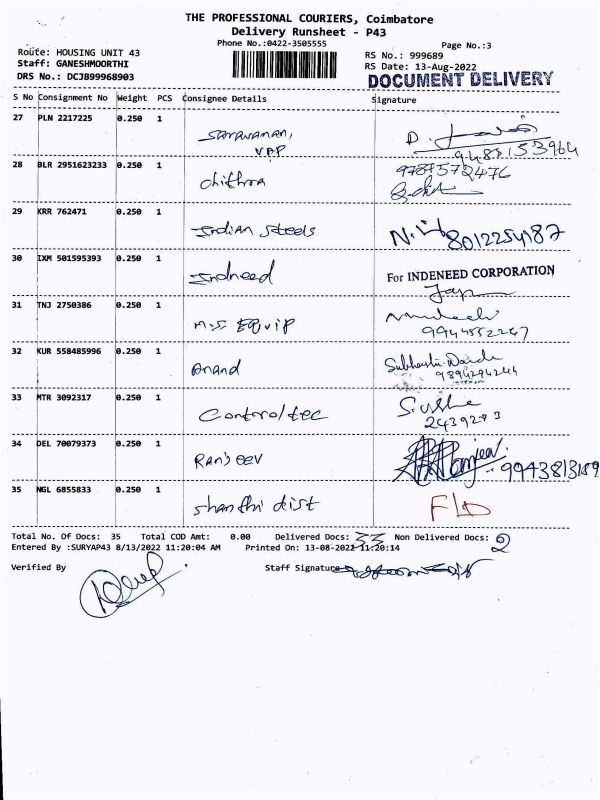 THE PROFESSIONAL COURIERS, Coimbatore
Delivery Runsheet - P43
Phone No.:0422-3505555
Page No.:3
Route: HOUSING UNIT 43
RS No.: 999689
Staff: GANESHMOORTHI
RS Date: 13-Aug-2022
DRS No.: DCJB99968903
DOCUMENT DELIVERY
S No Consignment No Weight PCS Consignee Details Signature
27 PLN 2217225 0.250 1
Saravanan,
VAP
28 BLR 2951623233 0.250 1
chithra
29 KRR 762471 0.250 1
Indian steels
8012254187
30 IXM 501595393 0.250 1
Indneed
For INDENEED CORPORATION
31 TNJ 2750386 0.250 1
M.S. EQUIP
9944552247
32 KUR 558485996 0.250 1
Anand
9894294244
33 MTR 3092317 0.250 1
Control tec
34 DEL 70079373 0.250 1
Ranjeev
9943813189
35 NGL 6855833 0.250 1
shanthi dist
Total No. Of Docs: 35 Total COD Amt: 0.00 Delivered Docs: 33 Non Delivered Docs: 2
Entered By :SURYAP43 8/13/2022 11:20:04 AM Printed On: 13-08-2022 11:20:14
Verified By Staff Signature